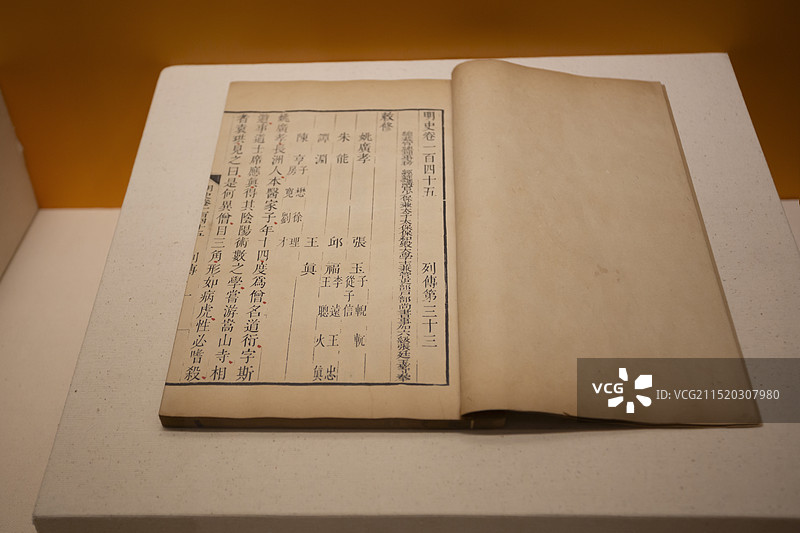 明史卷一百四十五 列傳第三十三
敕修
姚廣孝 張玉 子輗 軏 從子信
朱能 邱福 李遠 王忠 王聰 火眞
譚淵 王眞
陳亨 子懋 徐理 房寬 劉才
姚廣孝長洲人本醫家子年十四度爲僧名道衍字斯
道事道士席應眞得其陰陽術數之學嘗游嵩山寺相
者袁珙見之曰是何異僧目三角形如病虎性必嗜殺
明史卷一百四十五 列傳
VCG
ID: VCG211520307980